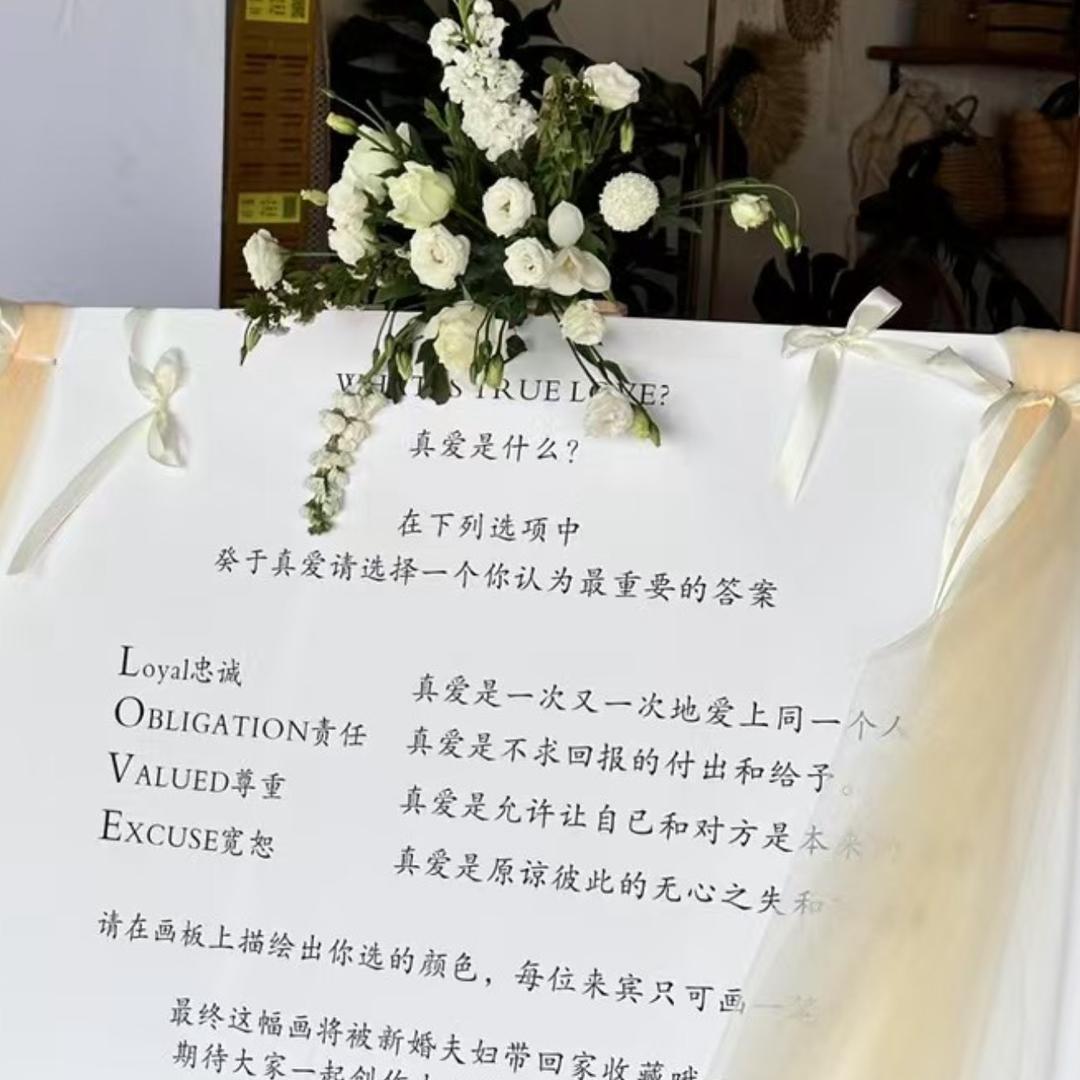 WHAT IS TRUE LOVE?
真爱是什么?
在下列选项中
癸于真爱请选择一个你认为最重要的答案
Loyal忠诚 真爱是一次又一次地爱上同一个人
OBLIGATION责任 真爱是不求回报的付出和给予。
VALUED尊重 真爱是允许让自已和对方是本来
EXCUSE宽恕 真爱是原谅彼此的无心之失和
请在画板上描绘出你选的颜色，每位来宾只可画一笔
最终这幅画将被新婚夫妇带回家收藏哦
期待大家一起创作